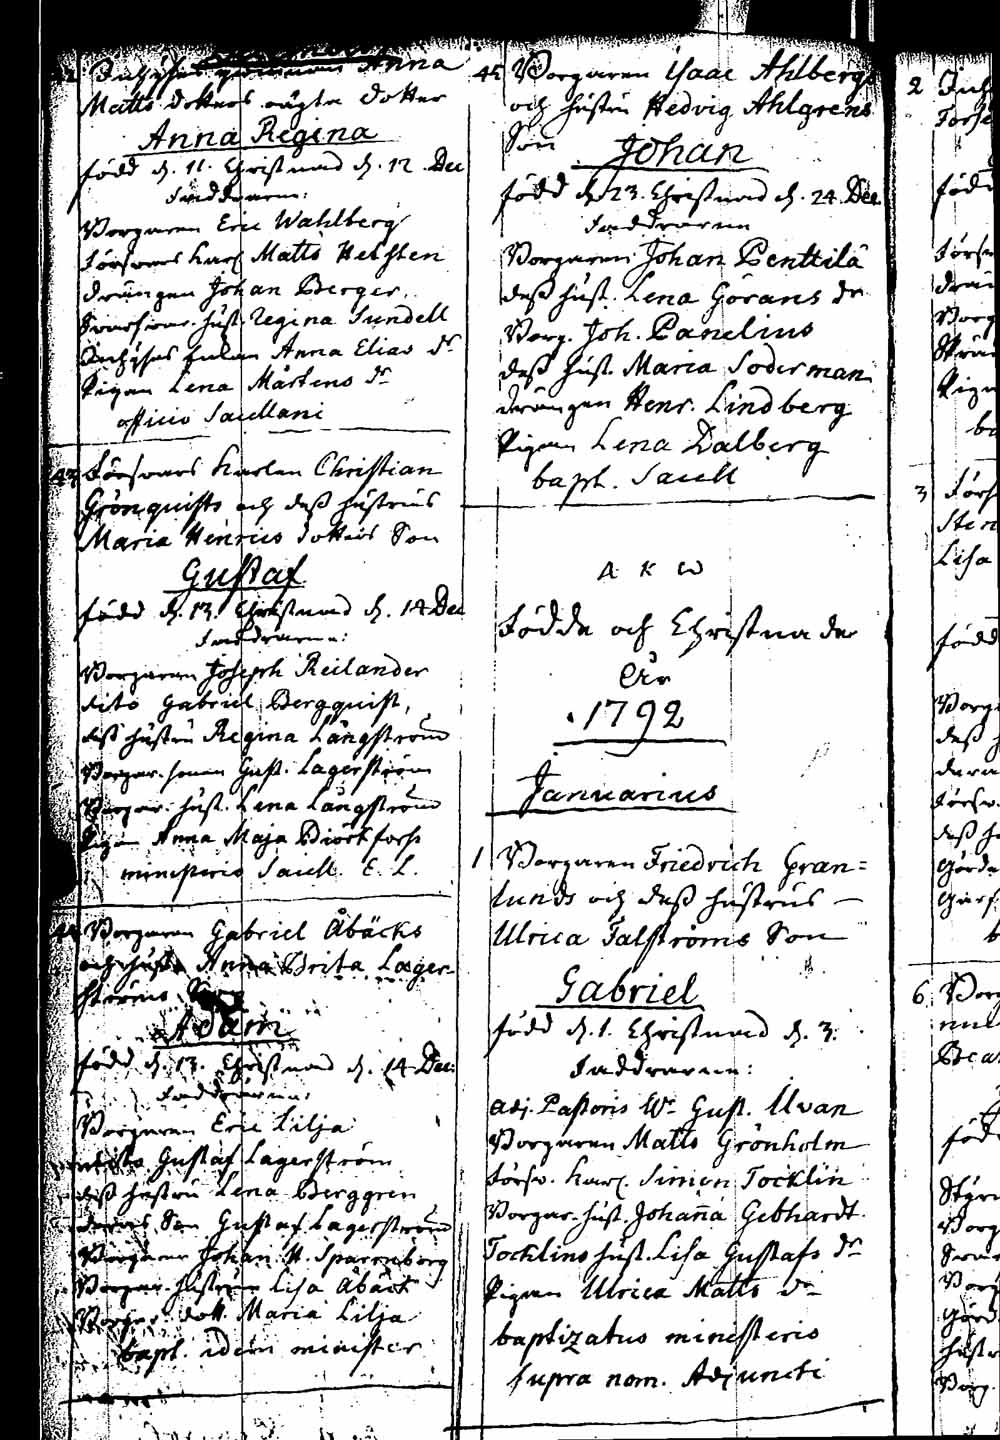 42. Inhyses qwinnan Anna
Matts dotters oägta dotter
Anna Regina
född d. 11. Christnad d. 12 Dec
Faddrarne:
Borgaren Eric Wahlberg
Försvars Karl Matts Helsten
drängen Johan Berger
hust. Regina Sundell
Inhyses Anna Elias dr
Pigan Lena Mårtens dr
officio Sacellani
43 Försvars Karlen Christian
Grönquists och dess hustrus
Maria Henrics dotters Son
Gustaf
född d. 13. Christnad d. 14 Dec
Faddrarne:
Borgaren Joseph Reilander
dito Gabriel Bergquist,
dess hustru Regina Långström
Borgar-sonen Gust. Lagerström
Borgar-hust. Lena Långström
Pigan Anna Maja Biörkforss
ministerio Sacell. E. L.
44 Borgaren Gabriel Åbäcks
och hust. Anna Brita Lager-
ströms Son
Adam
född d. 13. Christnad d. 14 Dec:
Faddrarne:
Borgaren Eric Lilja
Gustaf Lagerström
dess hustru Lena Berggren
deras Son Gustaf Lagerström
Borgaren Johan H. Sparrnberg
Borgar-hustrun Lisa Åbäck
Borgar dott. Maria Lilja
bapt. idem minister
45 Borgaren Isaac Ahlbergs
och hustru Hedvig Ahlgrens
Son Johan
född d. 23. Christnad d. 24 Dec.
Faddrarne
Borgaren Johan Penttilä
dess hust. Lena Görans dr
Borg. Joh. Panelius
dess hust. Maria Söderman
drängen Henr. Lindberg
Pigan Lena Dalberg
bapt. Sacell
A K W
Födde och Christnade
År
1792
Januarius
1 Borgaren Friedrich Gran=
lunds och dess hustrus –
Ulrica Talströms Son
Gabriel
född d. 1. Christnad d. 3.
Faddrarne:
Adj. Pastoris Hr Gust. Uvan
Borgaren Matts Grönholm
Försv. Karl. Simon Tocklin
Borgar-hust. Johaña Gebhardt
Tocklins hust. Lisa Gustafs dr
Pigan Ulrica Matts dr
baptizatus ministerio
supra nom. Adjuncti
2
3
Lisa
född
6